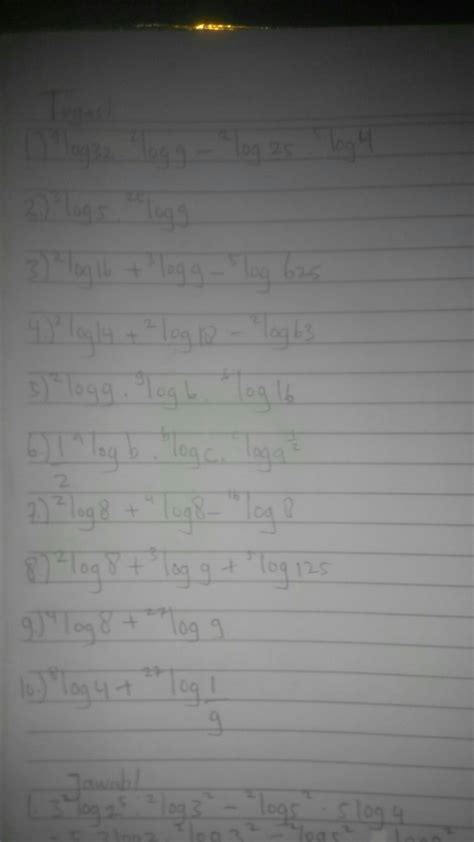 Tugas!
1.) ⁹log32 · ²log9 − ²log25 · ⁵log4
2.) ³log5 · ²⁵log9
3.) ²log16 + ³log9 − ⁵log625
4.) ²log14 + ²log18 − ²log63
5.) ²log9 · ⁹log6 · ⁶log16
6.) 1/2 ᵃlogb · ᵇlogc · ᶜloga^1/2
7.) ²log8 + ⁴log8 − ¹⁶log8
8.) ²log8 + ³log9 + ⁵log125
9.) ⁴log8 + ²⁷log9
10.) ⁸log4 + ²⁷log 1/9
Jawab!
1. 3²log2⁵ · ²log3² − ²log5² · 5log4